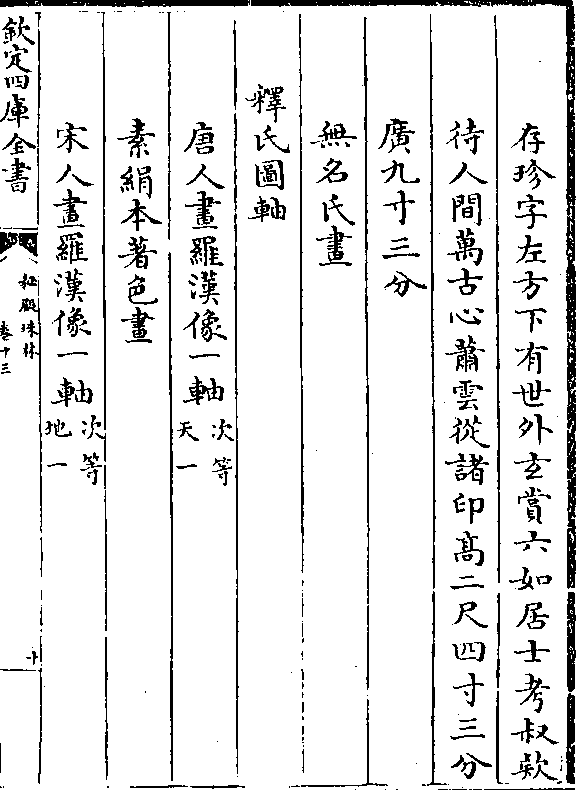 存珍字左方下有世外玄賞六如居士考叔欵
待人間萬古心蕭雲從諸印高二尺四寸三分
廣九寸三分
無名氏畫
釋氏圖軸
唐人畫羅漢像一軸次等天一
素絹本著色畫
宋人畫羅漢像一軸次等地一
欽定四庫全書
秘殿珠林
卷十三
十